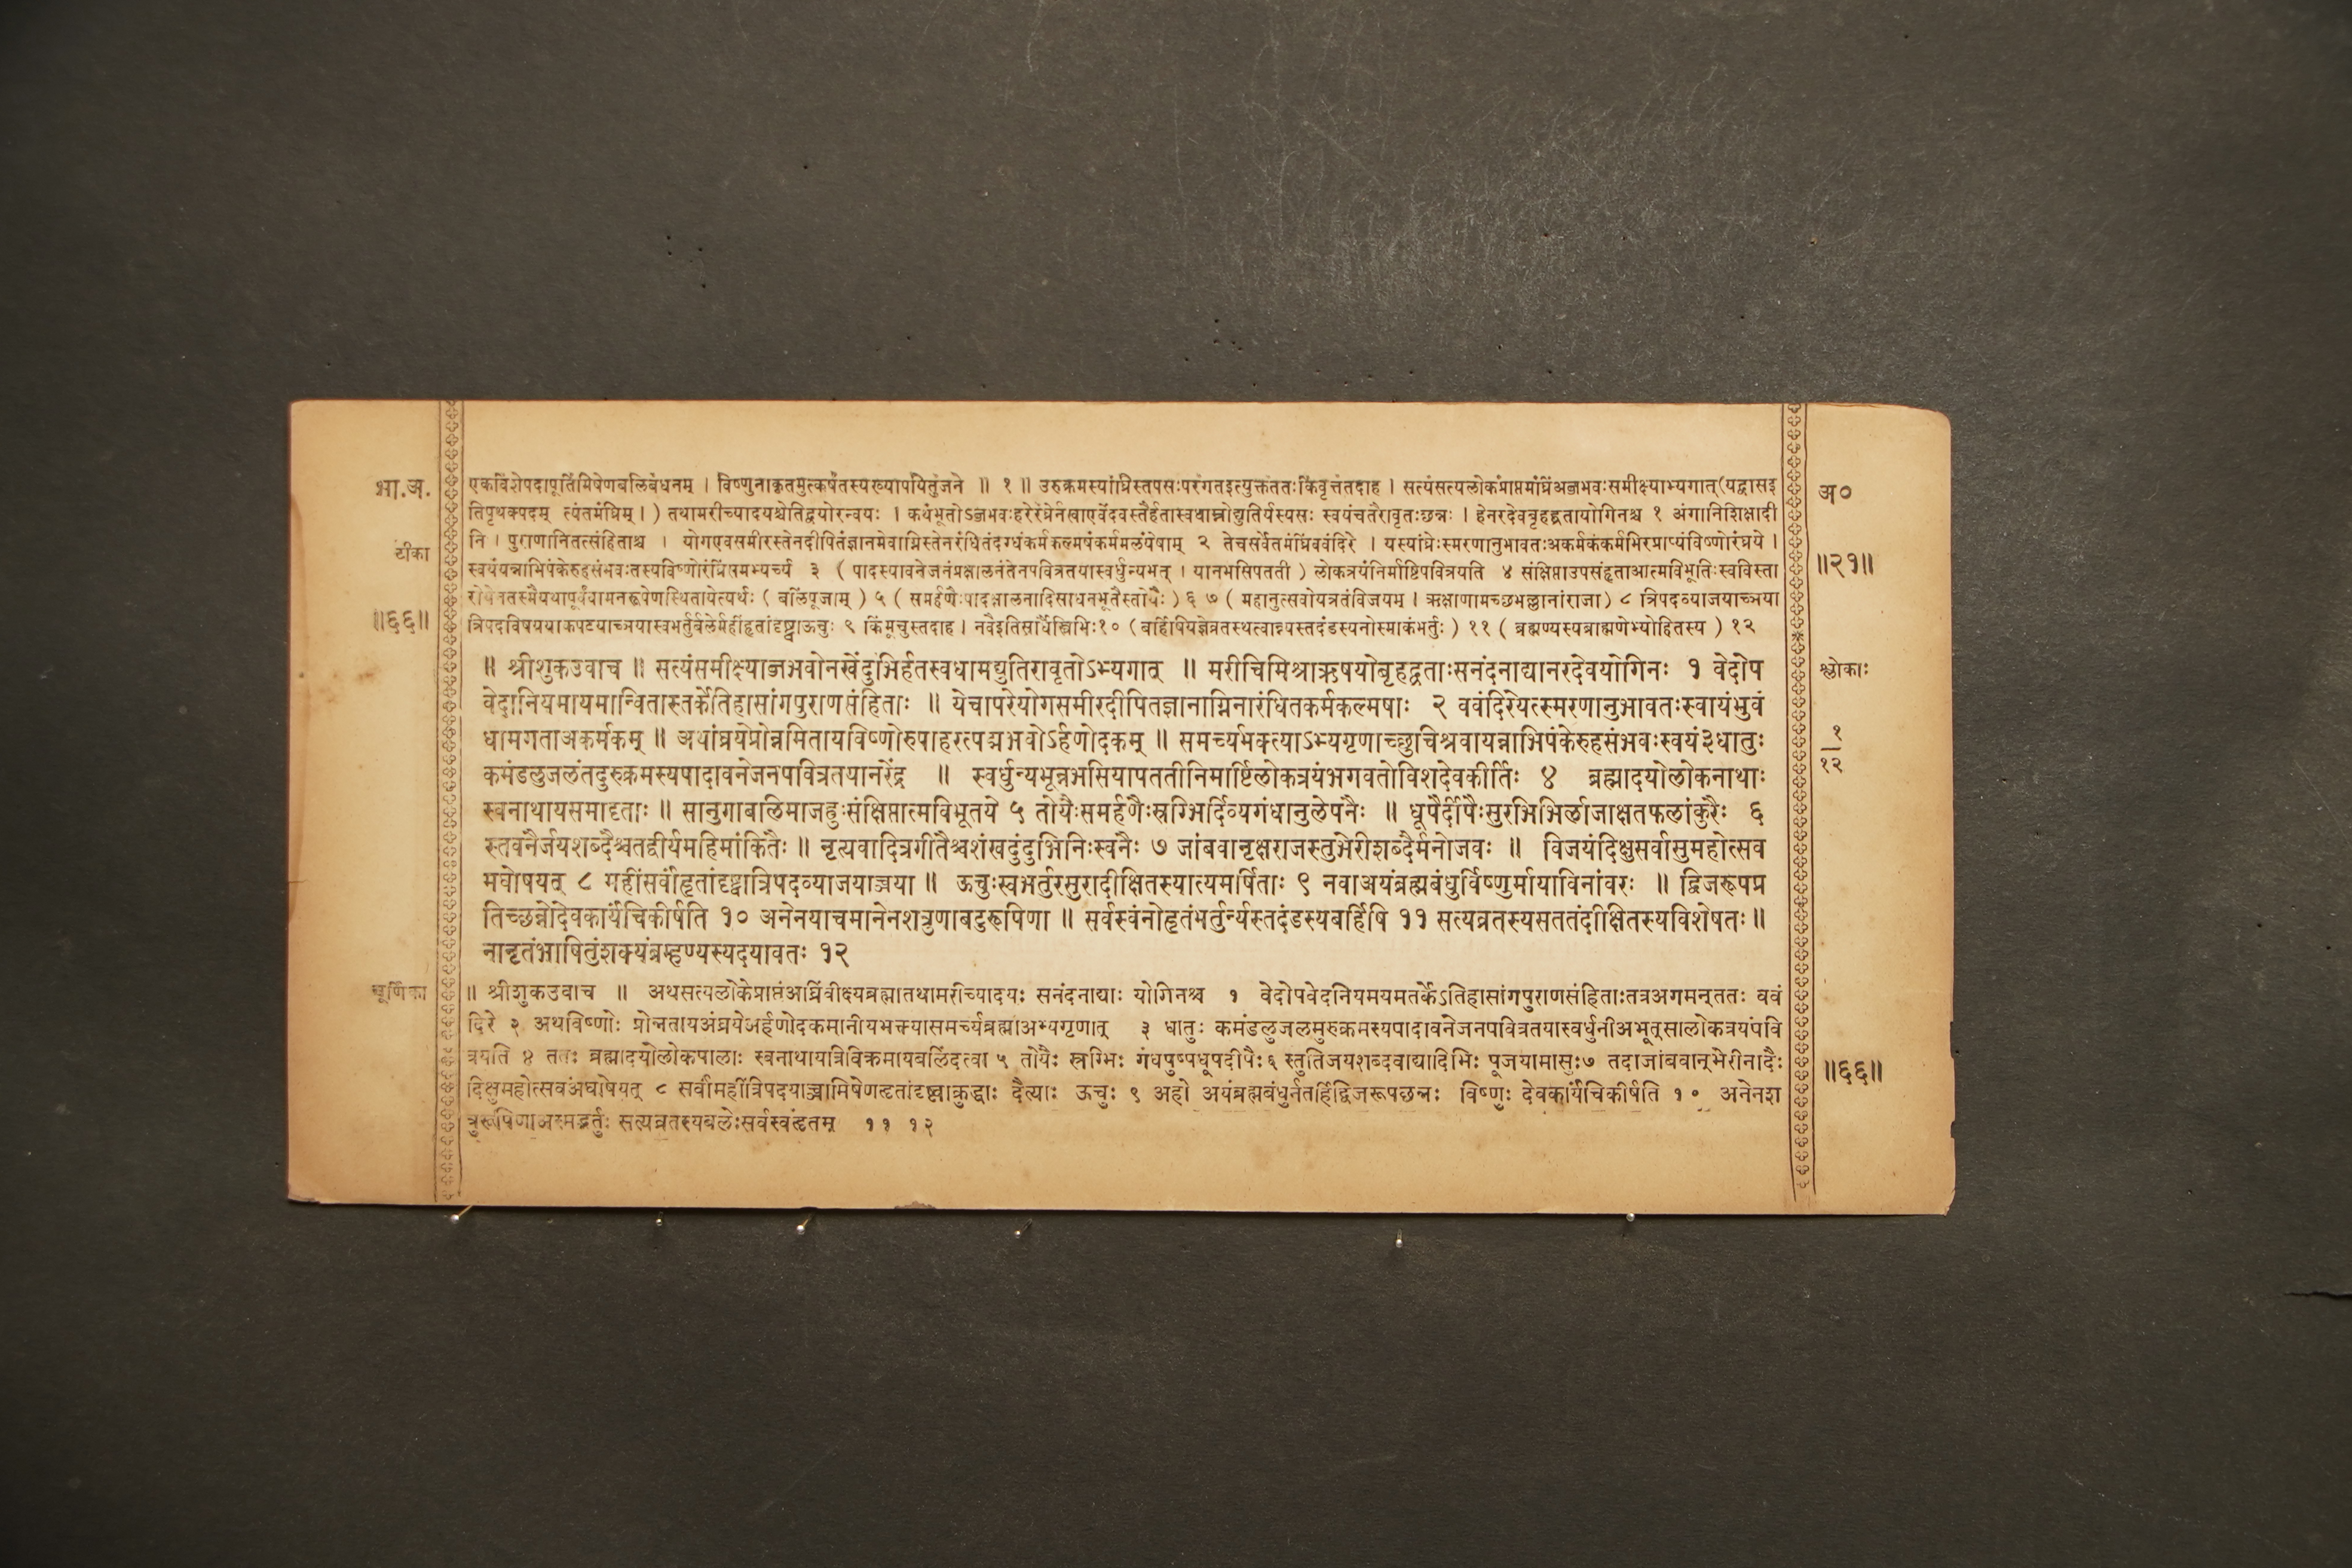 भा.अ.
एकविंशेपदापूर्तिमिषेणबलिबंधनम् । विष्णुनाकृतमुत्कर्षंतस्यख्यापयितुंजने ॥ १ ॥ उरुक्रमस्यांघ्रिस्तपसःपरंगतइत्युक्तंततःकिंवृत्तंतदाह । सत्यंसत्यलोकंप्राप्तमंघ्रिंअब्जभवःसमीक्ष्याभ्यगात्(यद्वासइ
अ०
तिपृथक्पदम् त्यंतमंघ्रिम् । ) तथामरीच्यादयश्चेतिद्वयोरन्वयः । कथंभूतोऽब्जभवःहरेरंघ्रेर्नखाएवेंदवस्तैर्हतास्वधाम्नोद्युतिर्यस्यसः स्वयंचतैरावृतःछन्नः । हेनरदेवबृहद्व्रतायोगिनश्च १ अंगानिशिक्षादी
टीका
नि । पुराणानितत्संहिताश्च । योगएवसमीरस्तेनदीपितंज्ञानमेवाग्निस्तेनरंधितंदग्धंकर्मकल्मषंकर्ममलंयेषाम् २ तेचसर्वेतमंघ्रिंववंदिरे । यस्यांघ्रेःस्मरणानुभावतःअकर्मकंकर्मभिरप्राप्यंविष्णोरंघ्रये ।
॥२१॥
स्वयंयन्नाभिपंकेरुहसंभवःतस्यविष्णोरंघ्रिंसमभ्यर्च्य ३ ( पादस्यावनेजनंप्रक्षालनंतेनपवित्रतयास्वर्धुन्यभूत् । यानभसिपतती ) लोकत्रयंनिर्मार्ष्टिपवित्रयति ४ संक्षिप्ताउपसंहृताआत्मविभूतिःस्वविस्ता
रोयेनतस्मैयथापूर्वंवामनरूपेणस्थितायेत्यर्थः ( बलिंपूजाम् ) ५ ( समर्हणैःपादक्षालनादिसाधनभूतैस्तोयैः ) ६ ७ ( महानुत्सवोयत्रतंविजयम् । ऋक्षाणामच्छभल्लानांराजा ) ८ त्रिपदव्याजयाच्ञया
॥६६॥
त्रिपदविषययाकपटयाच्ञयास्वभर्तुर्बलेर्महींहृतांदृष्ट्वाऊचुः ९ किमूचुस्तदाह । नवैइतिसार्धैस्त्रिभिः१० (बर्हिषियज्ञेव्रतस्थत्वान्न्यस्तदंडस्यनोस्माकंभर्तुः ) ११ ( ब्रह्मण्यस्यब्राह्मणेभ्योहितस्य ) १२
॥ श्रीशुकउवाच ॥ सत्यंसमीक्ष्याब्जभवोनखेंदुभिर्हतस्वधामद्युतिरावृतोऽभ्यगात् ॥ मरीचिमिश्राऋषयोबृहद्व्रताःसनंदनाद्यानरदेवयोगिनः १ वेदोप
श्लोकाः
वेदानियमायमान्वितास्तर्केतिहासांगपुराणसंहिताः ॥ येचापरेयोगसमीरदीपितज्ञानाग्निनारंधितकर्मकल्मषाः २ ववंदिरेयत्स्मरणानुभावतःस्वायंभुवं
धामगताअकर्मकम् ॥ अथांघ्रयेप्रोन्नमितायविष्णोरुपाहरत्पद्मभवोऽर्हणोदकम् ॥ समर्च्यभक्त्याऽभ्यगृणाच्छुचिश्रवायन्नाभिपंकेरुहसंभवःस्वयं३धातुः
१
१२
कमंडलुजलंतदुरुक्रमस्यपादावनेजनपवित्रतयानरेंद्र ॥ स्वर्धुन्यभून्नभसियापततीनिमार्ष्टिलोकत्रयंभगवतोविशदेवकीर्तिः ४ ब्रह्मादयोलोकनाथाः
स्वनाथायसमादृताः ॥ सानुगाबलिमाजह्रुःसंक्षिप्तात्मविभूतये ५ तोयैःसमर्हणैःस्रग्भिर्दिव्यगंधानुलेपनैः ॥ धूपैर्दीपैःसुरभिभिर्लाजाक्षतफलांकुरैः ६
स्तवनैर्जयशब्दैश्चतद्वीर्यमहिमांकितैः ॥ नृत्यवादित्रगीतैश्चशंखदुंदुभिनिःस्वनैः ७ जांबवानृक्षराजस्तुभेरीशब्दैर्मनोजवः ॥ विजयंदिक्षुसर्वासुमहोत्सव
मघोषयत् ८ महींसर्वांहृतांदृष्ट्वात्रिपदव्याजयाच्ञया ॥ ऊचुःस्वभर्तुरसुरादीक्षितस्यात्यमर्षिताः ९ नवाअयंब्रह्मबंधुर्विष्णुर्मायाविनांवरः ॥ द्विजरूपप्र
तिच्छन्नोदेवकार्यंचिकीर्षति १० अनेनयाचमानेनशत्रुणाबटुरूपिणा ॥ सर्वस्वंनोहृतंभर्तुर्न्यस्तदंडस्यबर्हिषि ११ सत्यव्रतस्यसततंदीक्षितस्यविशेषतः॥
नानृतंभाषितुंशक्यंब्रम्हण्यस्यदयावतः १२
चूर्णिका
॥ श्रीशुकउवाच ॥ अथसत्यलोकेप्राप्तंअंघ्रिंवीक्ष्यब्रह्मातथामरीच्यादयः सनंदनाद्याः योगिनश्च १ वेदोपवेदनियमयमतर्केऽतिहासांगपुराणसंहिताःतत्रअगमन्ततः ववं
दिरे २ अथविष्णोः प्रोन्नतायअंघ्रयेअर्हणोदकमानीयभक्त्यासमर्च्यब्रह्माअभ्यगृणात् ३ धातुः कमंडलुजलमुरुक्रमस्यपादावनेजनपवित्रतयास्वर्धुनीअभूत्सालोकत्रयंपवि
त्रयति ४ ततः ब्रह्मादयोलोकपालाः स्वनाथायत्रिविक्रमायबलिंदत्वा ५ तोयैः स्रग्भिः गंधपुष्पधूपदीपैः६ स्तुतिजयशब्दवाद्यादिभिः पूजयामासुः७ तदाजांबवान्भेरीनादैः
॥६६॥
दिक्षुमहोत्सवंअघोषयत् ८ सर्वांमहींत्रिपदयाच्ञामिषेणहृतांदृष्ट्वाक्रुद्धाः दैत्याः ऊचुः ९ अहो अयंब्रह्मबंधुर्नतर्हिद्विजरूपछन्नः विष्णुः देवकार्यंचिकीर्षति १० अनेनश
त्रुरूपिणाअस्मद्भर्तुः सत्यव्रतस्यबलेःसर्वस्वंहृतम् ११ १२